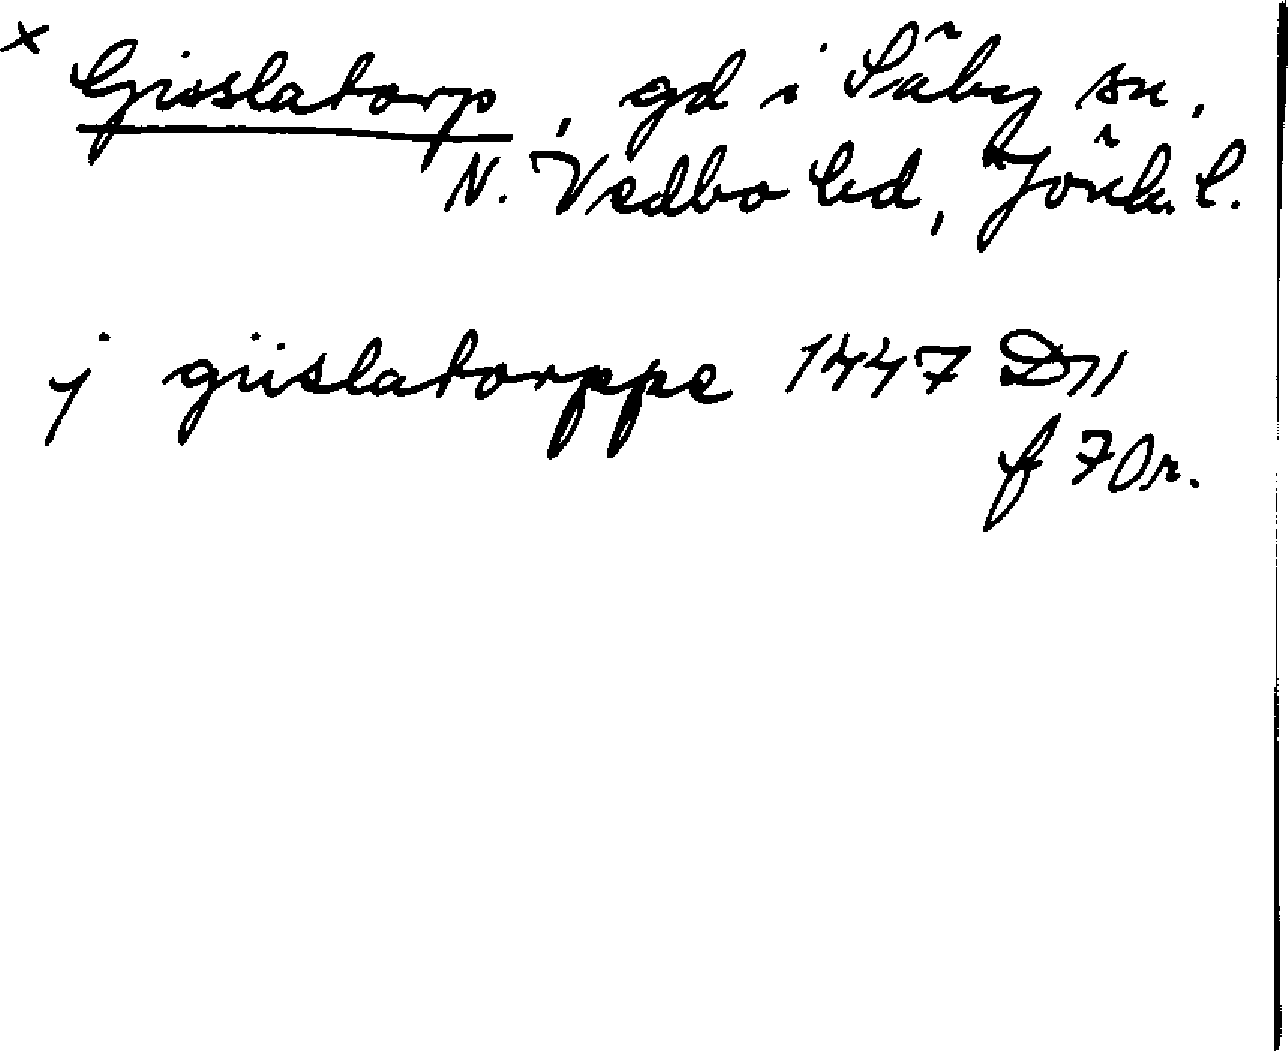 x Gisslatorp, gd i Säby sn,
N. Vedbo hd, Jönk. l.
j giislatorppe 1447 D11
f 70r.